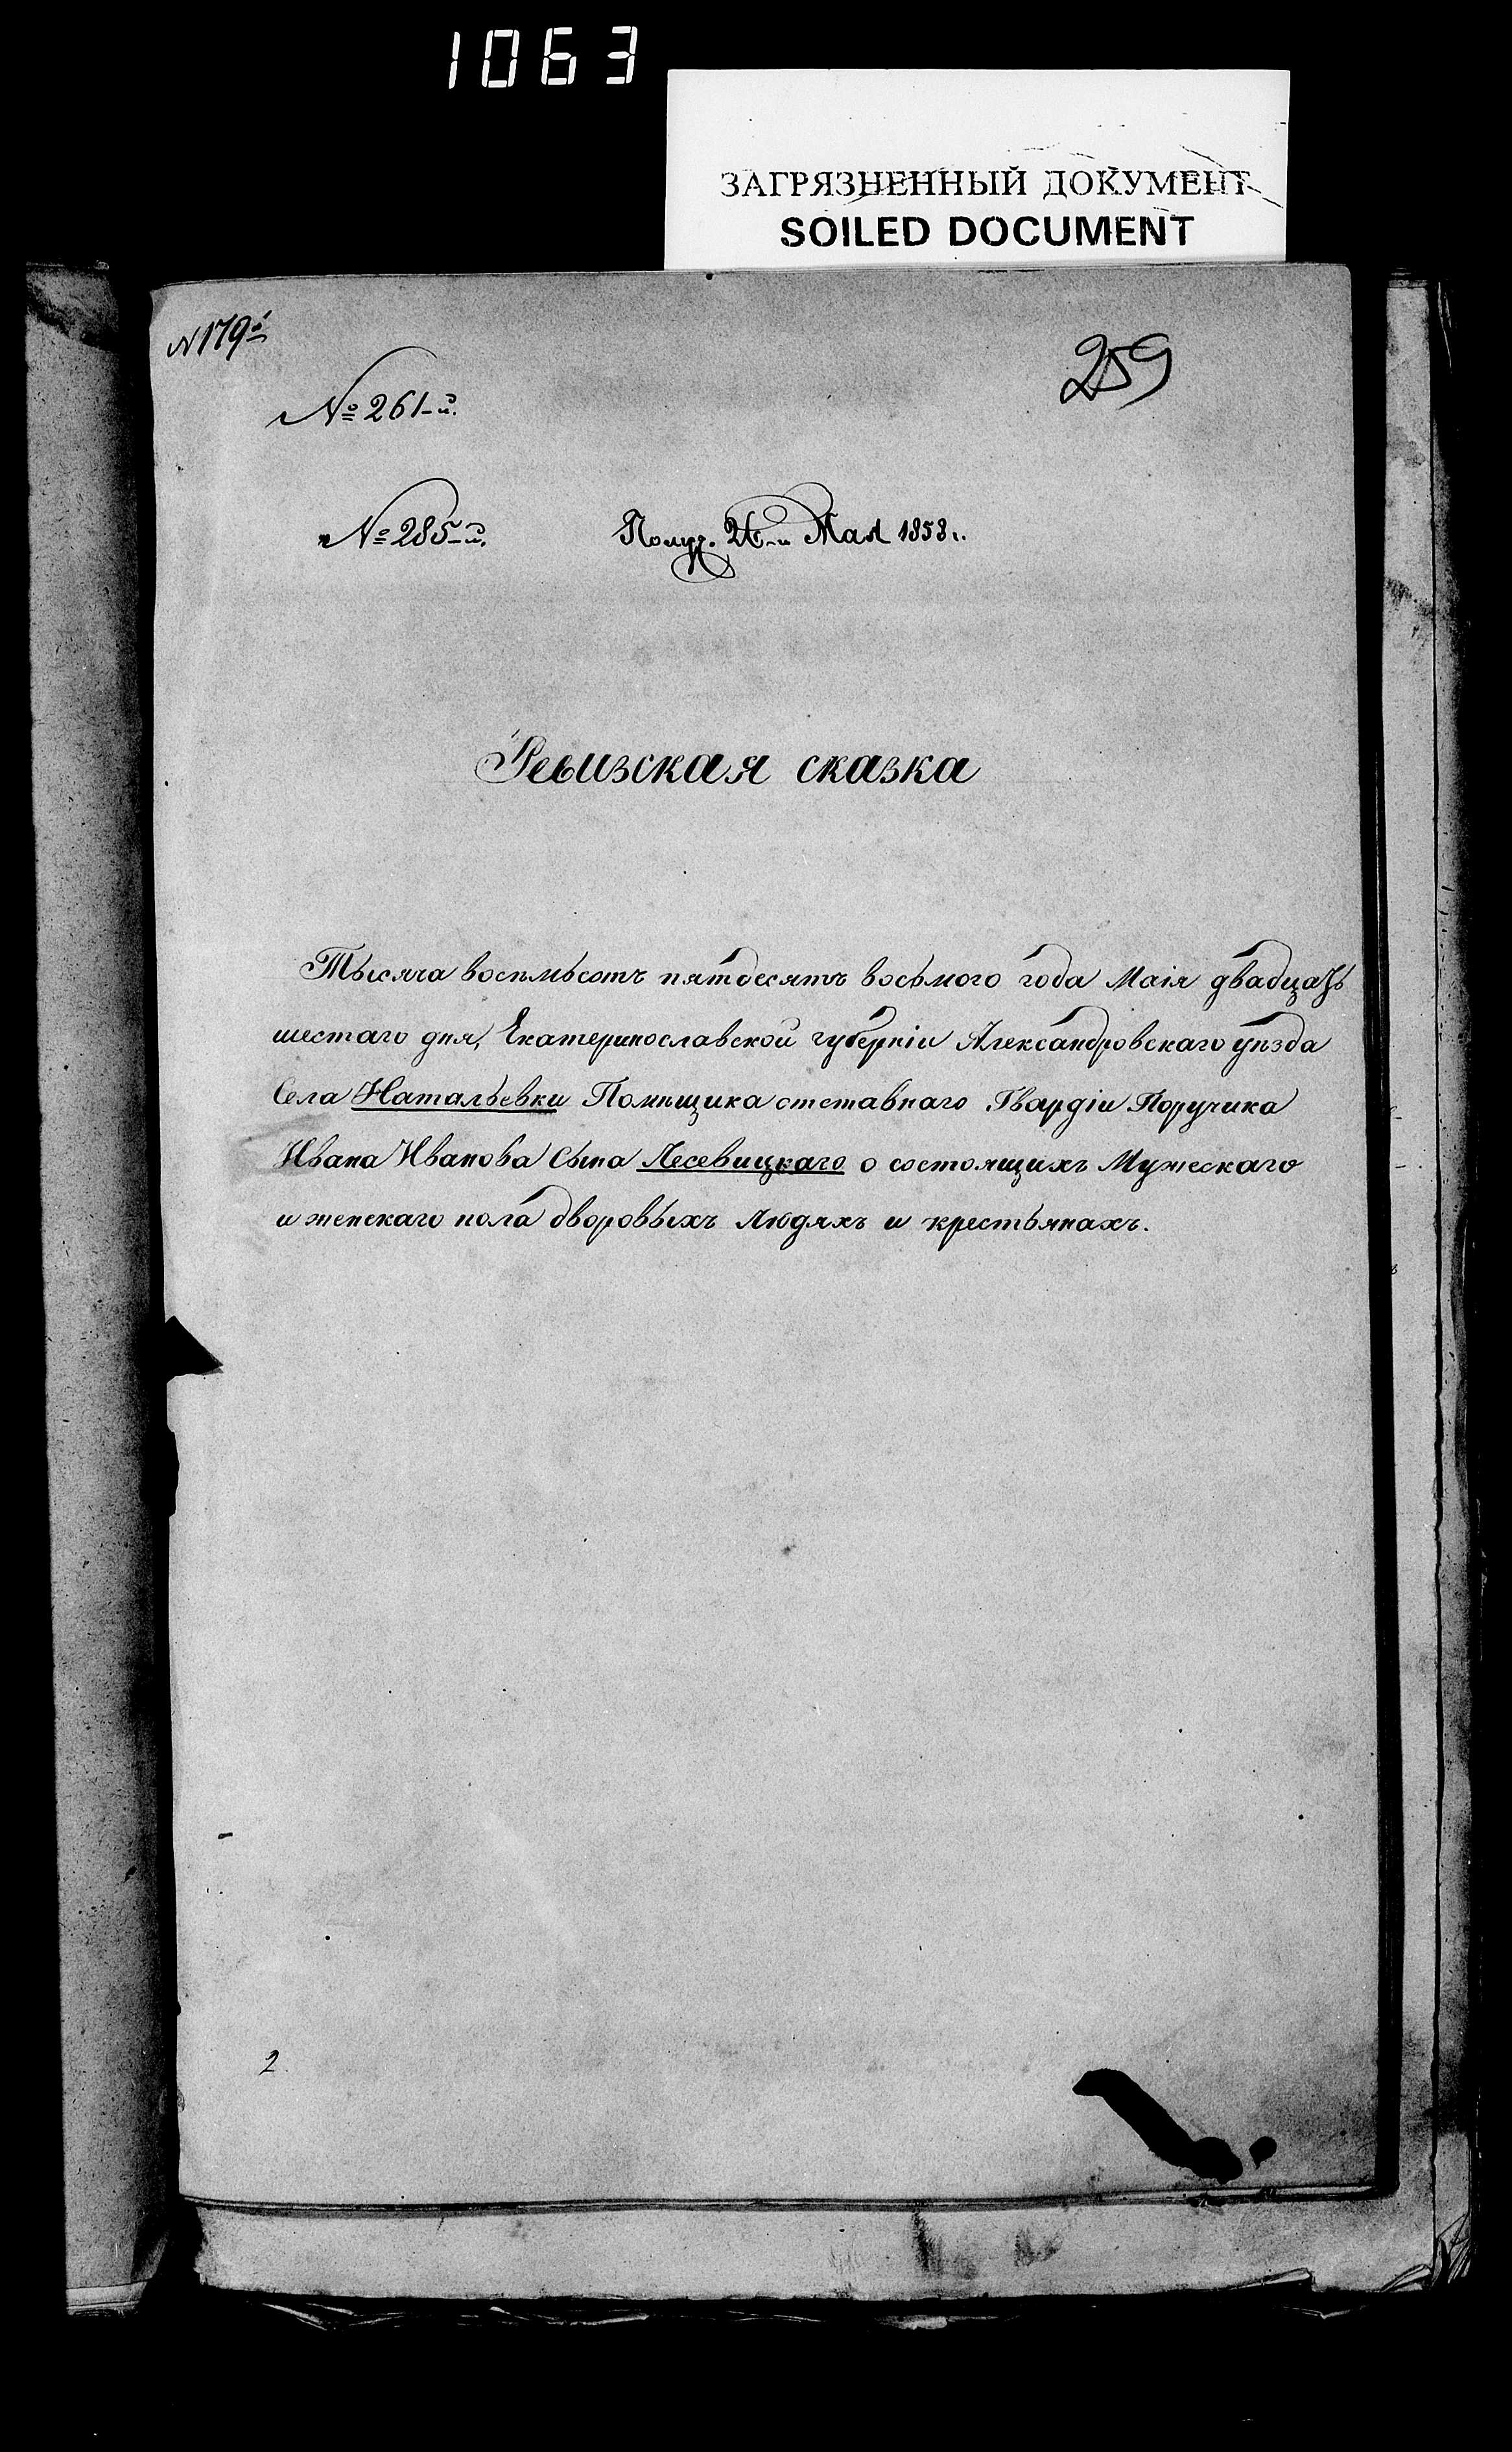 1063
ЗАГРЯЗНЕННЫЙ ДОКУМЕНТ
SOILED DOCUMENT
N179й
259
№261-й.
№285-й. Получ. 26-и Мая 1858 г.
Ревизская сказка
Тысяча восемьсотъ пятдесятъ восьмого года Маія двадцать
шестаго дня, Екатеринославской губерніи Александровскаго уѣзда
Села Натальевки Помѣщика отставнаго Гвардіи Поручика
Ивана Иванова Сына Лесевицкаго о состоящихъ Мужескаго
и женскаго пола дворовыхъ людяхъ и крестьянахъ.
2